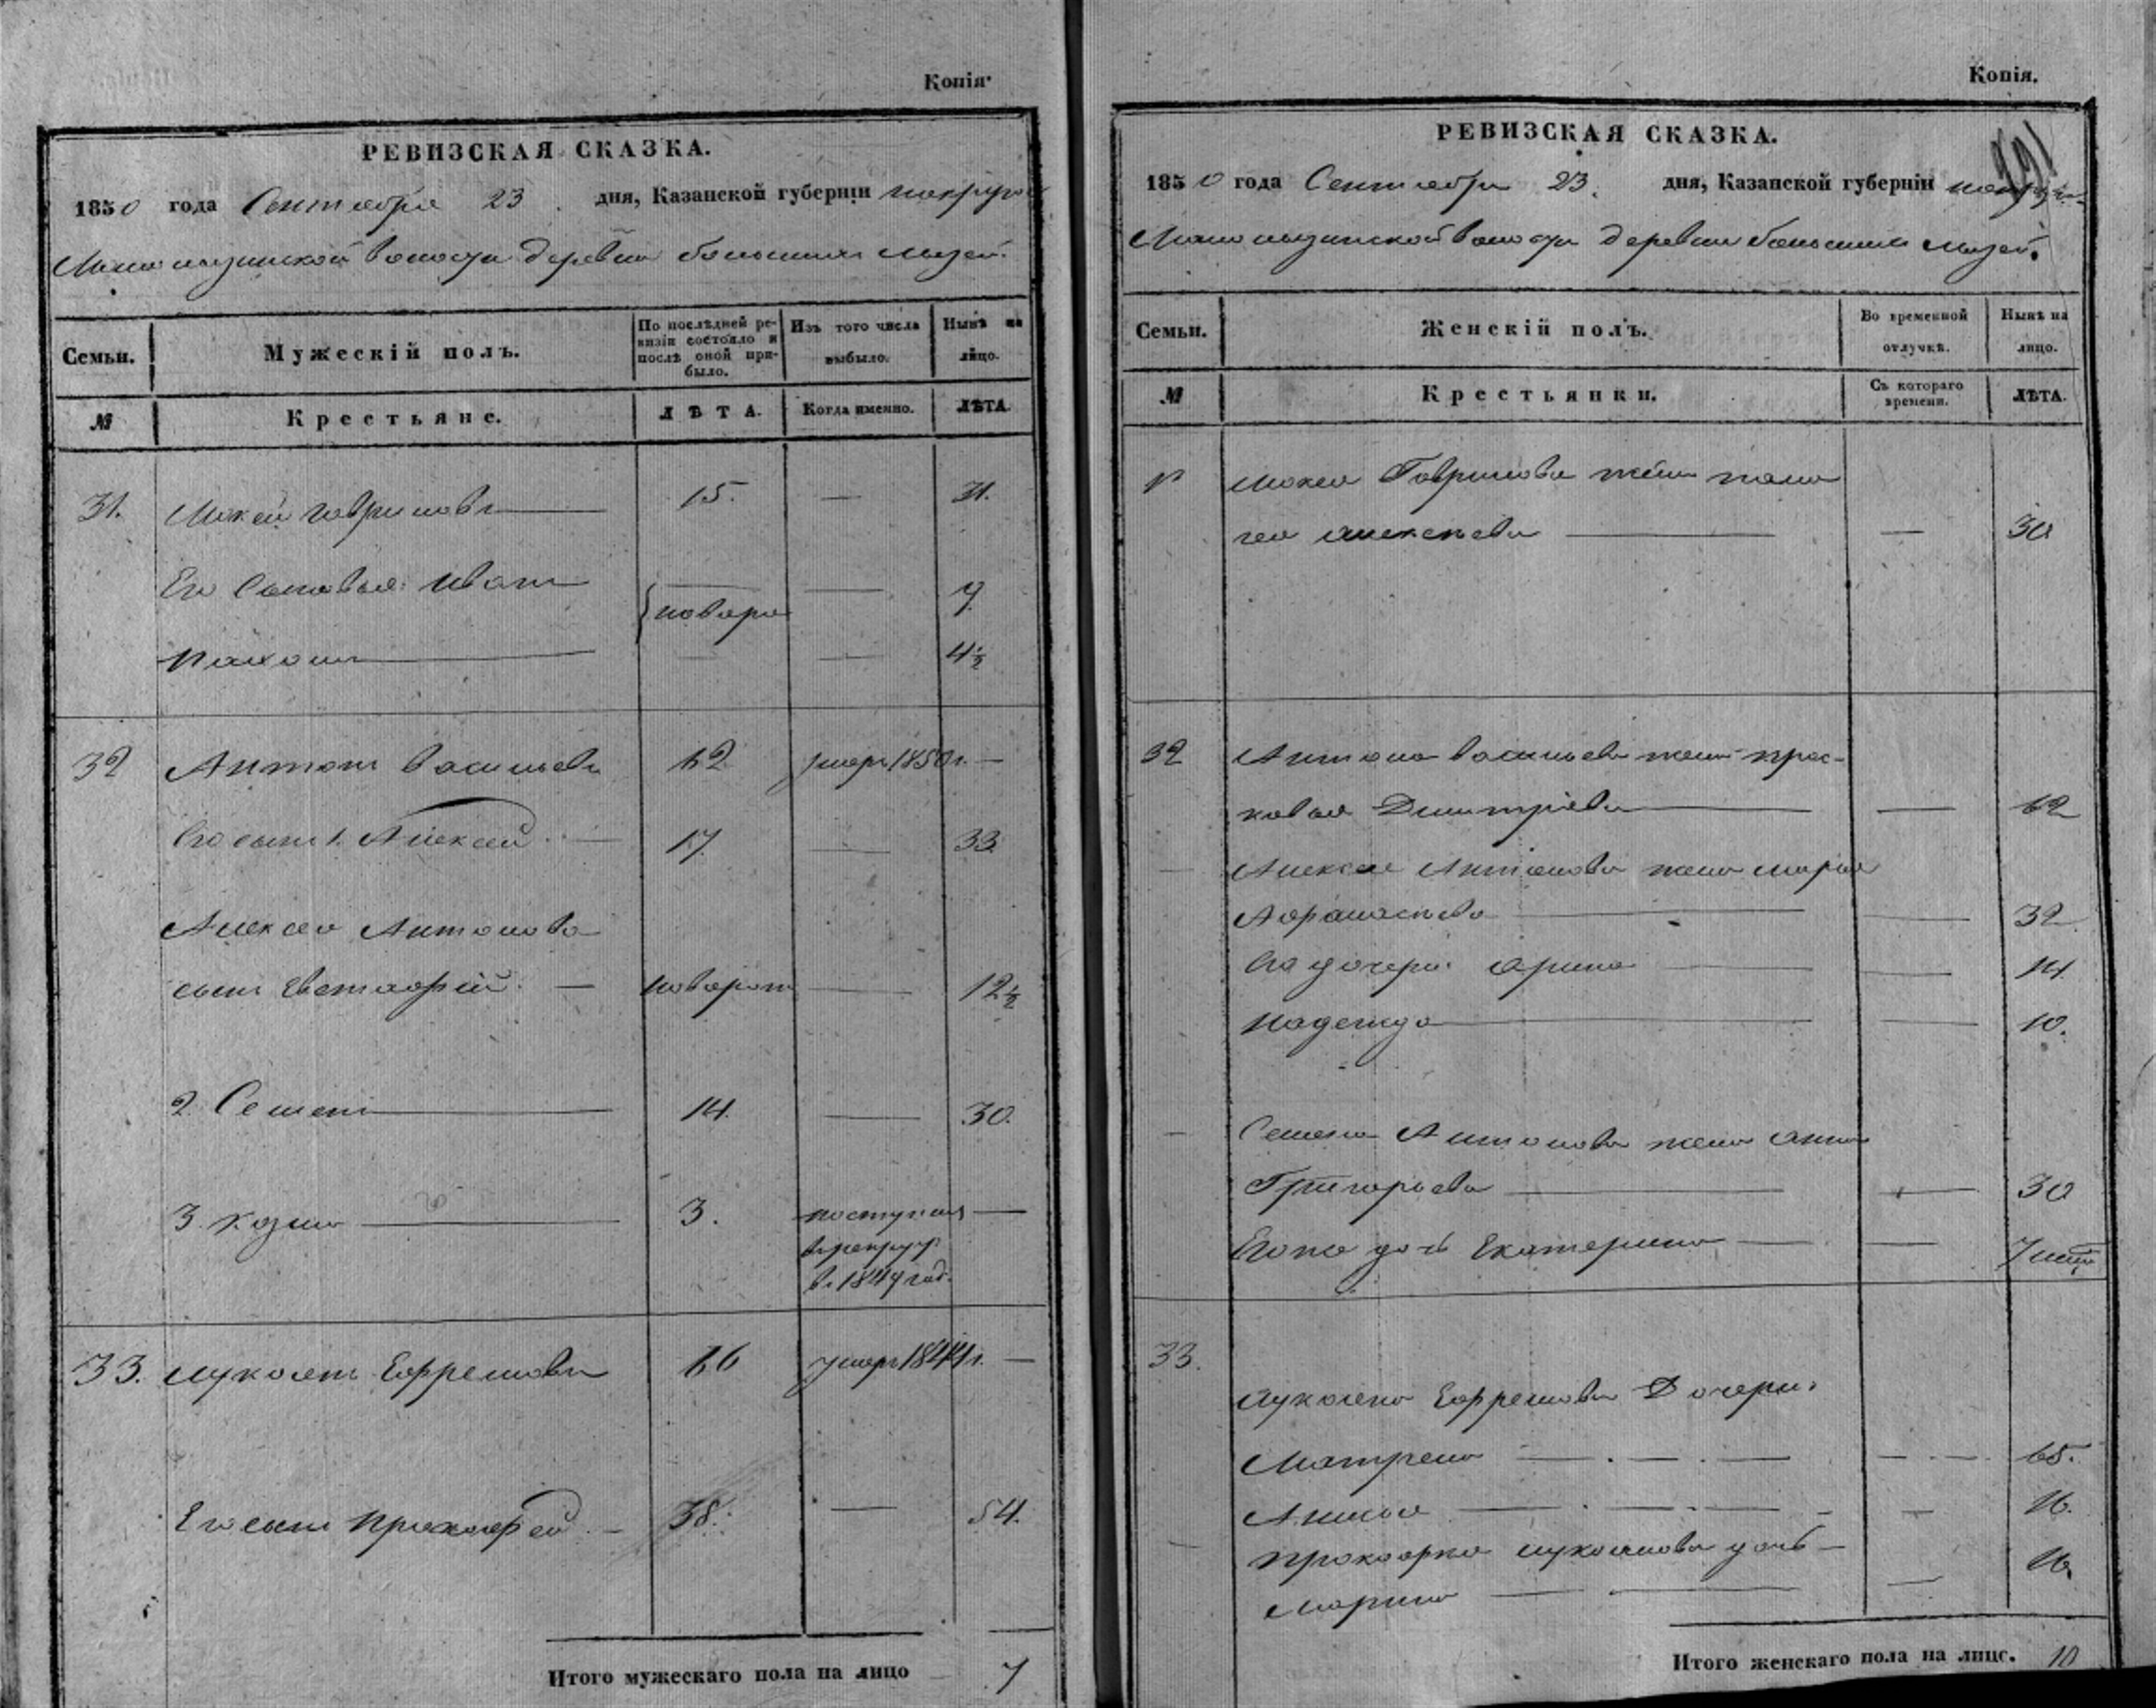 Копія.
РЕВИЗСКАЯ СКАЗКА.
1850 года Сентября 23 дня, Казанской губерніи
волости деревни большихъ
Семьи.
Мужескій полъ.
По послѣдней ревизіи состояло и послѣ оной прибыло.
Изъ того числа выбыло.
Нынѣ на лицо.
№
Крестьяне.
ЛѢТА.
Когда именно.
ЛѢТА.
31. Мокей Гавриловъ 15. — 31.
Его сыновья: Иванъ — 7
Пахомъ — 4½
32 Антонъ Васильевъ 62 умеръ 1850 г. —
Его сынъ 1. Алексей 17. — 33
Алексея Антонова
сынъ Евстафій. — новорож — 12½
2 Семенъ 14. — 30.
3. Козма 3. поступилъ —
въ рекруты
въ 1849 год.
33. Лукоянъ Ефремовъ 66 умеръ 1844 г. —
Его сынъ Прокофей 38. — 54.
Итого мужескаго пола на лицо 7
Копія.
РЕВИЗСКАЯ СКАЗКА.
1850 года Сентября 23. дня, Казанской губерніи
волости деревни большихъ
Семьи.
Женскій полъ.
Во временной отлучкѣ.
Нынѣ на лицо.
№
Крестьянки.
Съ котораго времени.
ЛѢТА.
Мокея Гаврилова жена Пела
гея Алексеева — 30
32 Антона Васильева жена Прас-
ковья Димитріева — 62
Алексея Антонова жена Марья
Афанасьева — 32
Его дочери: Арина — 14
Надежда — 10.
Семена Антонова жена Анна
Григорьева — 30
Его же дочь Екатерина — 7
33.
Лукояна Ефремова Дочери:
Матрена — 65.
Анисья — 16.
Прокофья Лукоянова дочь —
Марина — 16.
Итого женскаго пола на лицо. 10